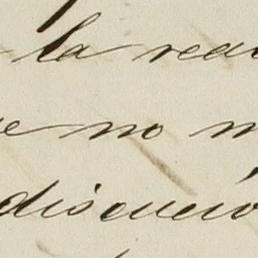 la reac
e no m
discució